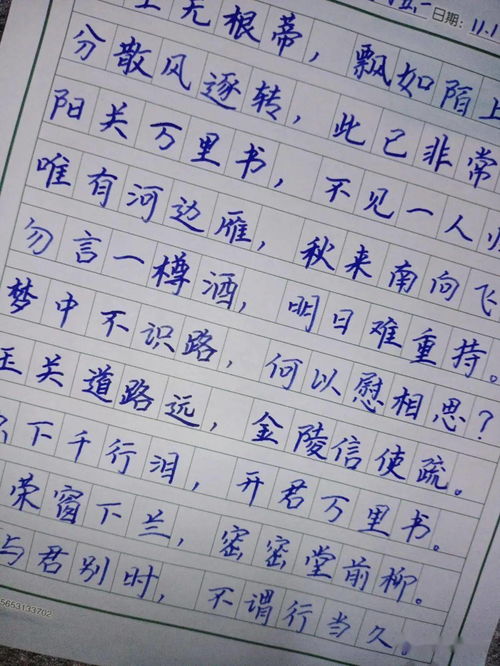 日期: 11.1
上无根蒂，飘如陌上
分散风逐转，此已非常
阳关万里书，不见一人归
唯有河边雁，秋来南向飞
勿言一樽酒，明日难重持。
梦中不识路，何以慰相思？
玉关道路远，金陵信使疏。
下千行泪，开君万里书。
荣窗下兰，密密堂前柳。
与君别时，不谓行当久。
5653133702